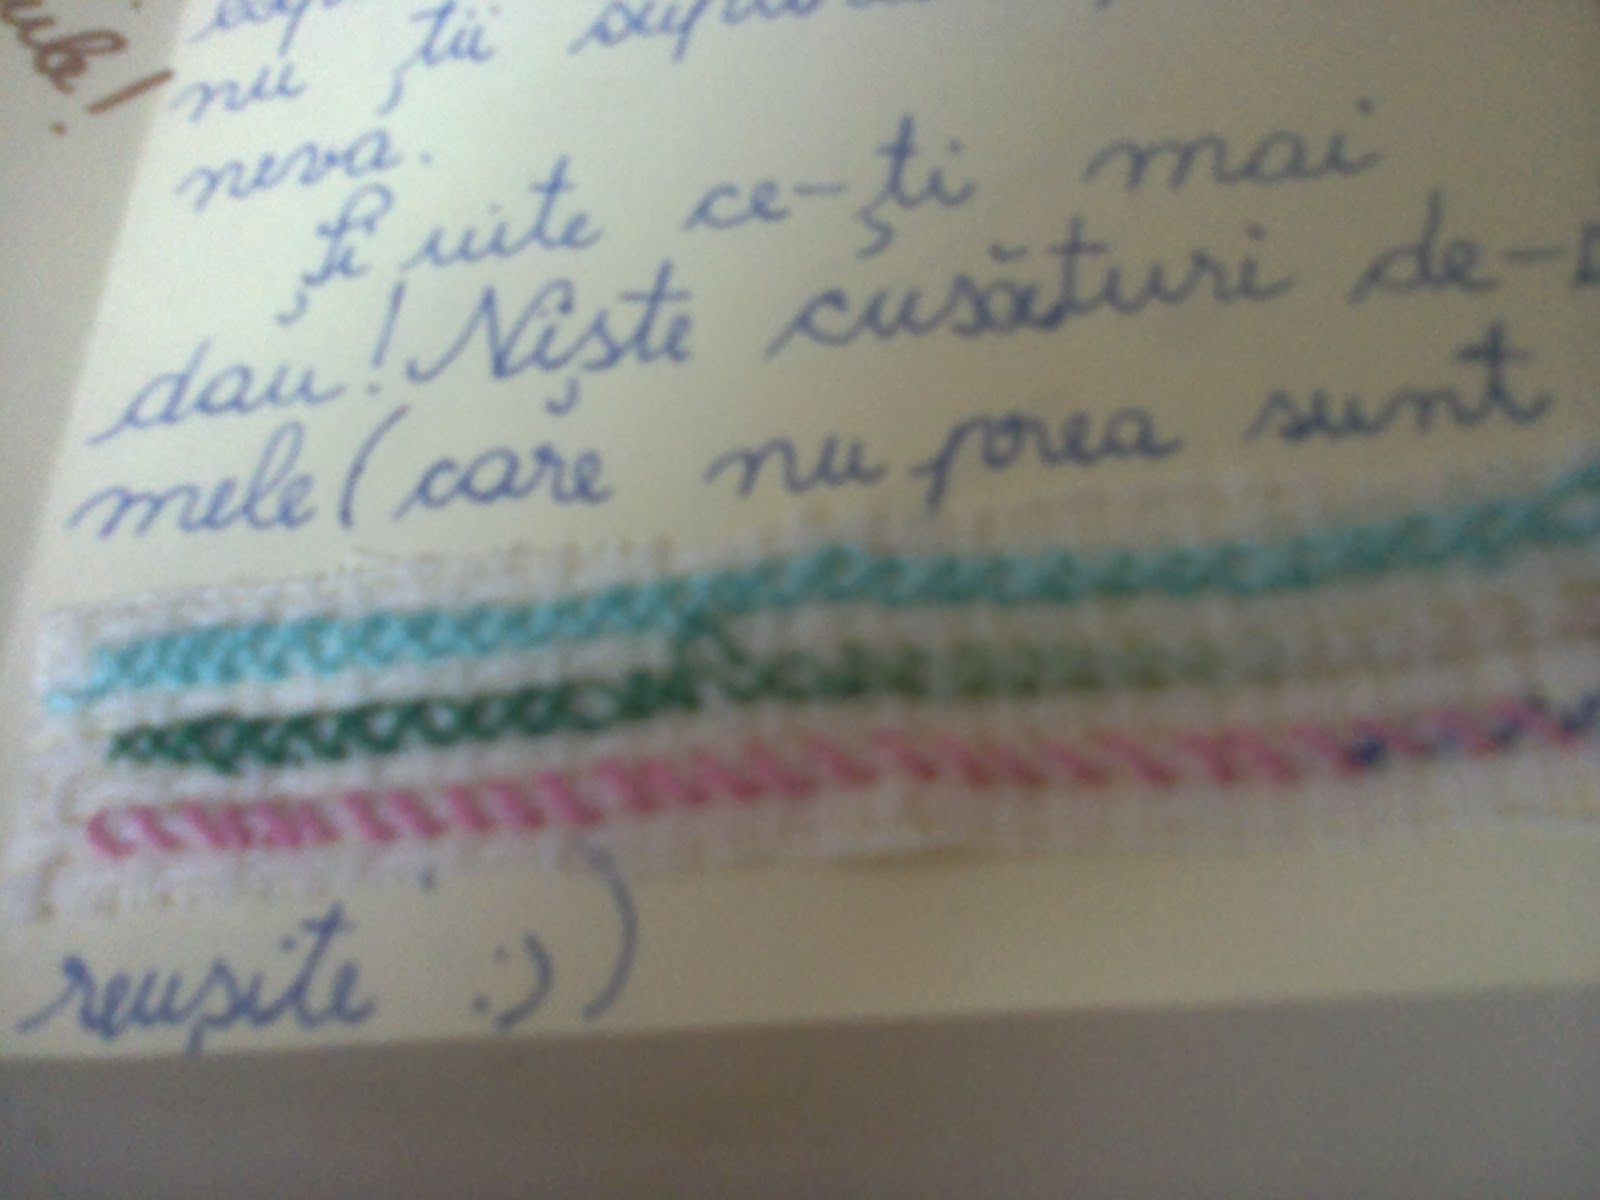 nu ții
neva.
Și uite ce-ți mai
dau! Niște cusături de-
mele (care nu prea sunt
reușite :))